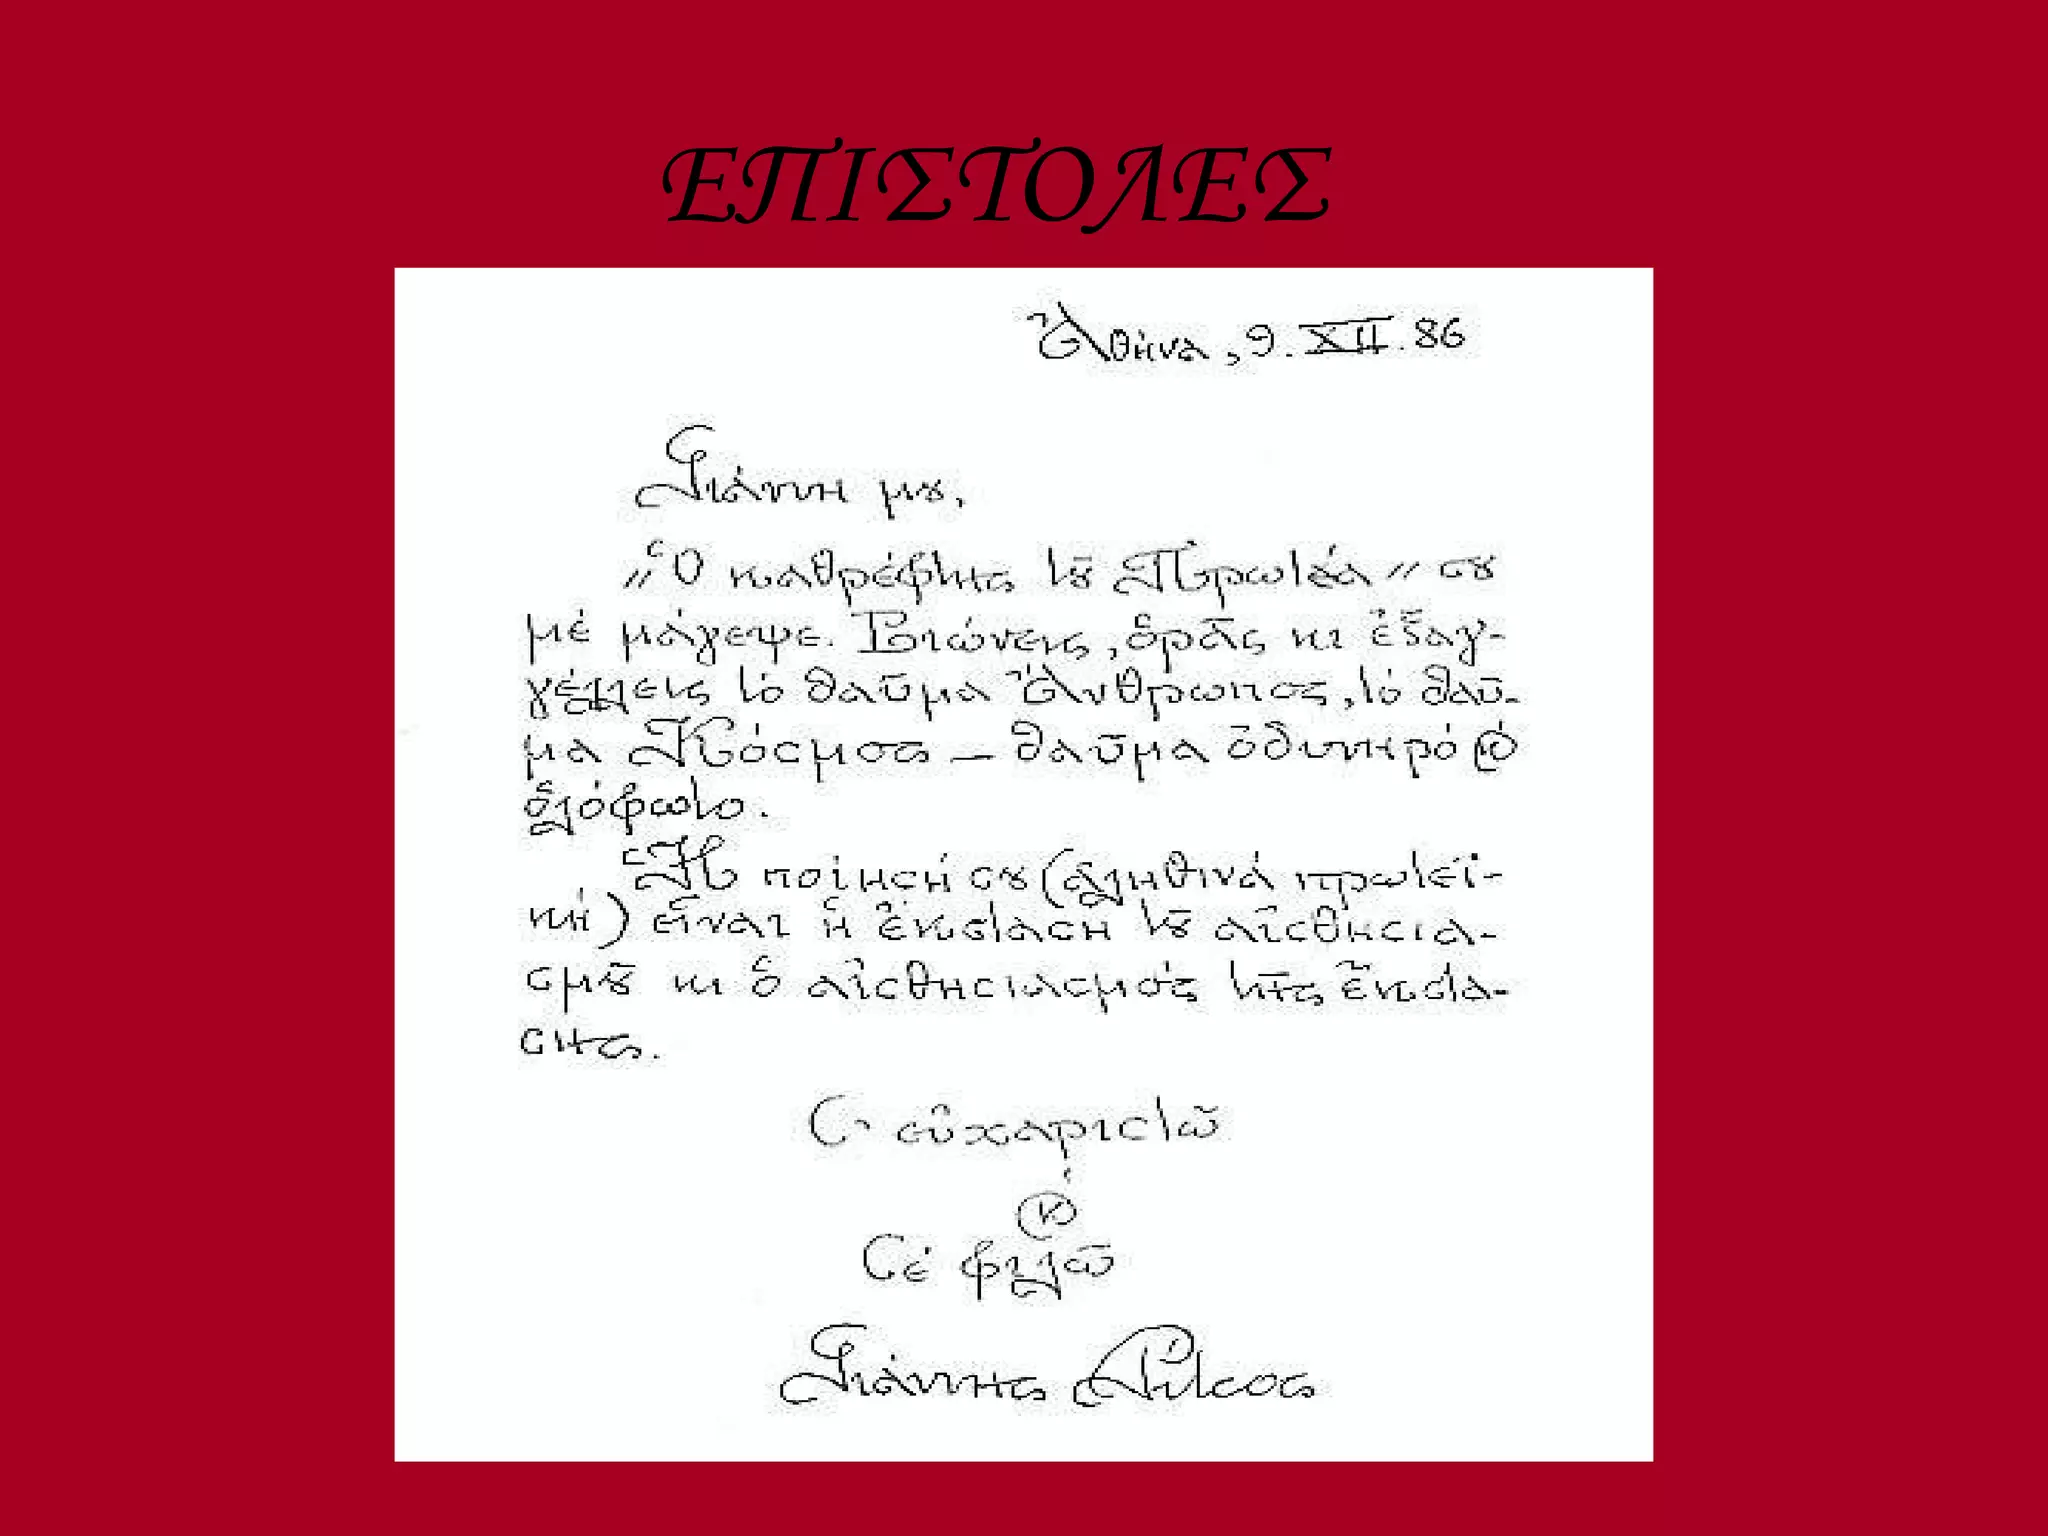 ΕΠΙΣΤΟΛΕΣ
Ἀθήνα, 9.XII.86
Γιάννη μου,
"Ὁ καθρέφτης τοῦ Πρωτέα" σου
μέ μάγεψε. Βιώνεις, ὁρᾶς κι ἐξαγ-
γέλλεις τό θαῦμα Ἄνθρωπος, τό θαῦ-
μα Κόσμος – θαῦμα ὀδυνηρό κ'
ὁλόφωτο.
Ἡ ποίησή σου (ἀληθινά πρωτεϊ-
κή) εἶναι ἡ ἔκσταση τοῦ αἰσθησια-
σμοῦ κι ὁ αἰσθησιασμός τῆς ἔκστα-
σης.
Σ' εὐχαριστῶ
κ'
Σέ φιλῶ
Γιάννης Ρίτσος